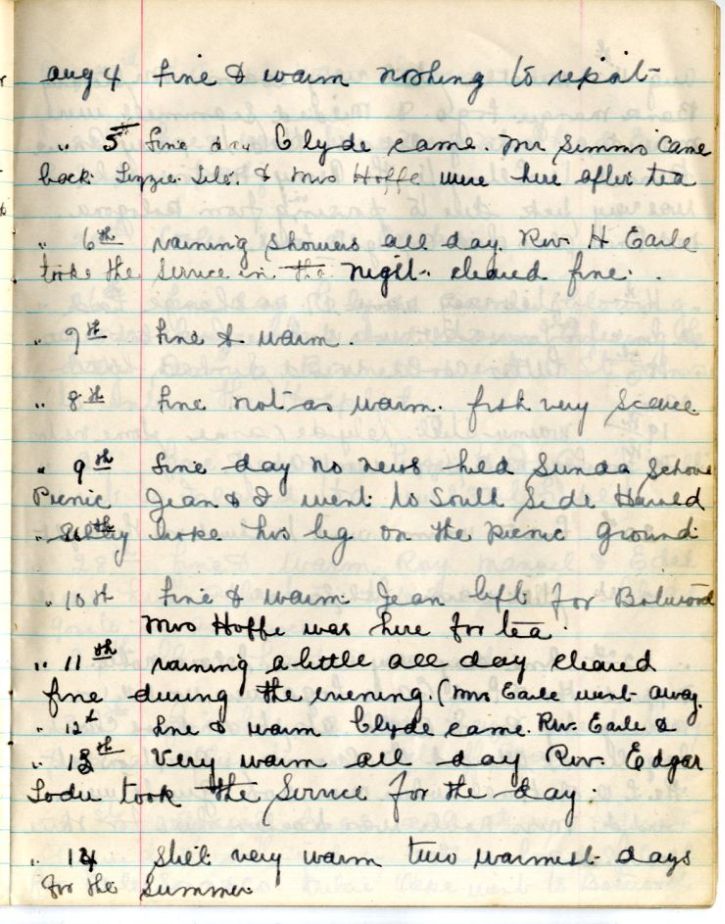 Aug 4 fine & warm nothing to repait
" 5th fine day Clyde came. Mr Simms came
back. Lizzie & Mrs Hoffe were here after tea
" 6th raining showers all day. Rev. H Earle
toke the Service in the night. cleared fine.
" 7th fine & warm.
" 8th fine not as warm. fish very scarce
" 9th fine day no news held Sunda School
Picnic Jean & I went to South Side Harold
broke his leg on the picnic ground
" 10th fine & warm. Jean left for Botwood
Mrs Hoffe was here for tea.
" 11th raining a little all day cleared
fine during the evening. (Mrs Earle went away.
" 12th fine & warm Clyde came. Rev. Earle &
" 13th Very warm all day Rev. Edgar
took the Service for the day.
" 14 still very warm two warmest days
for the Summer.